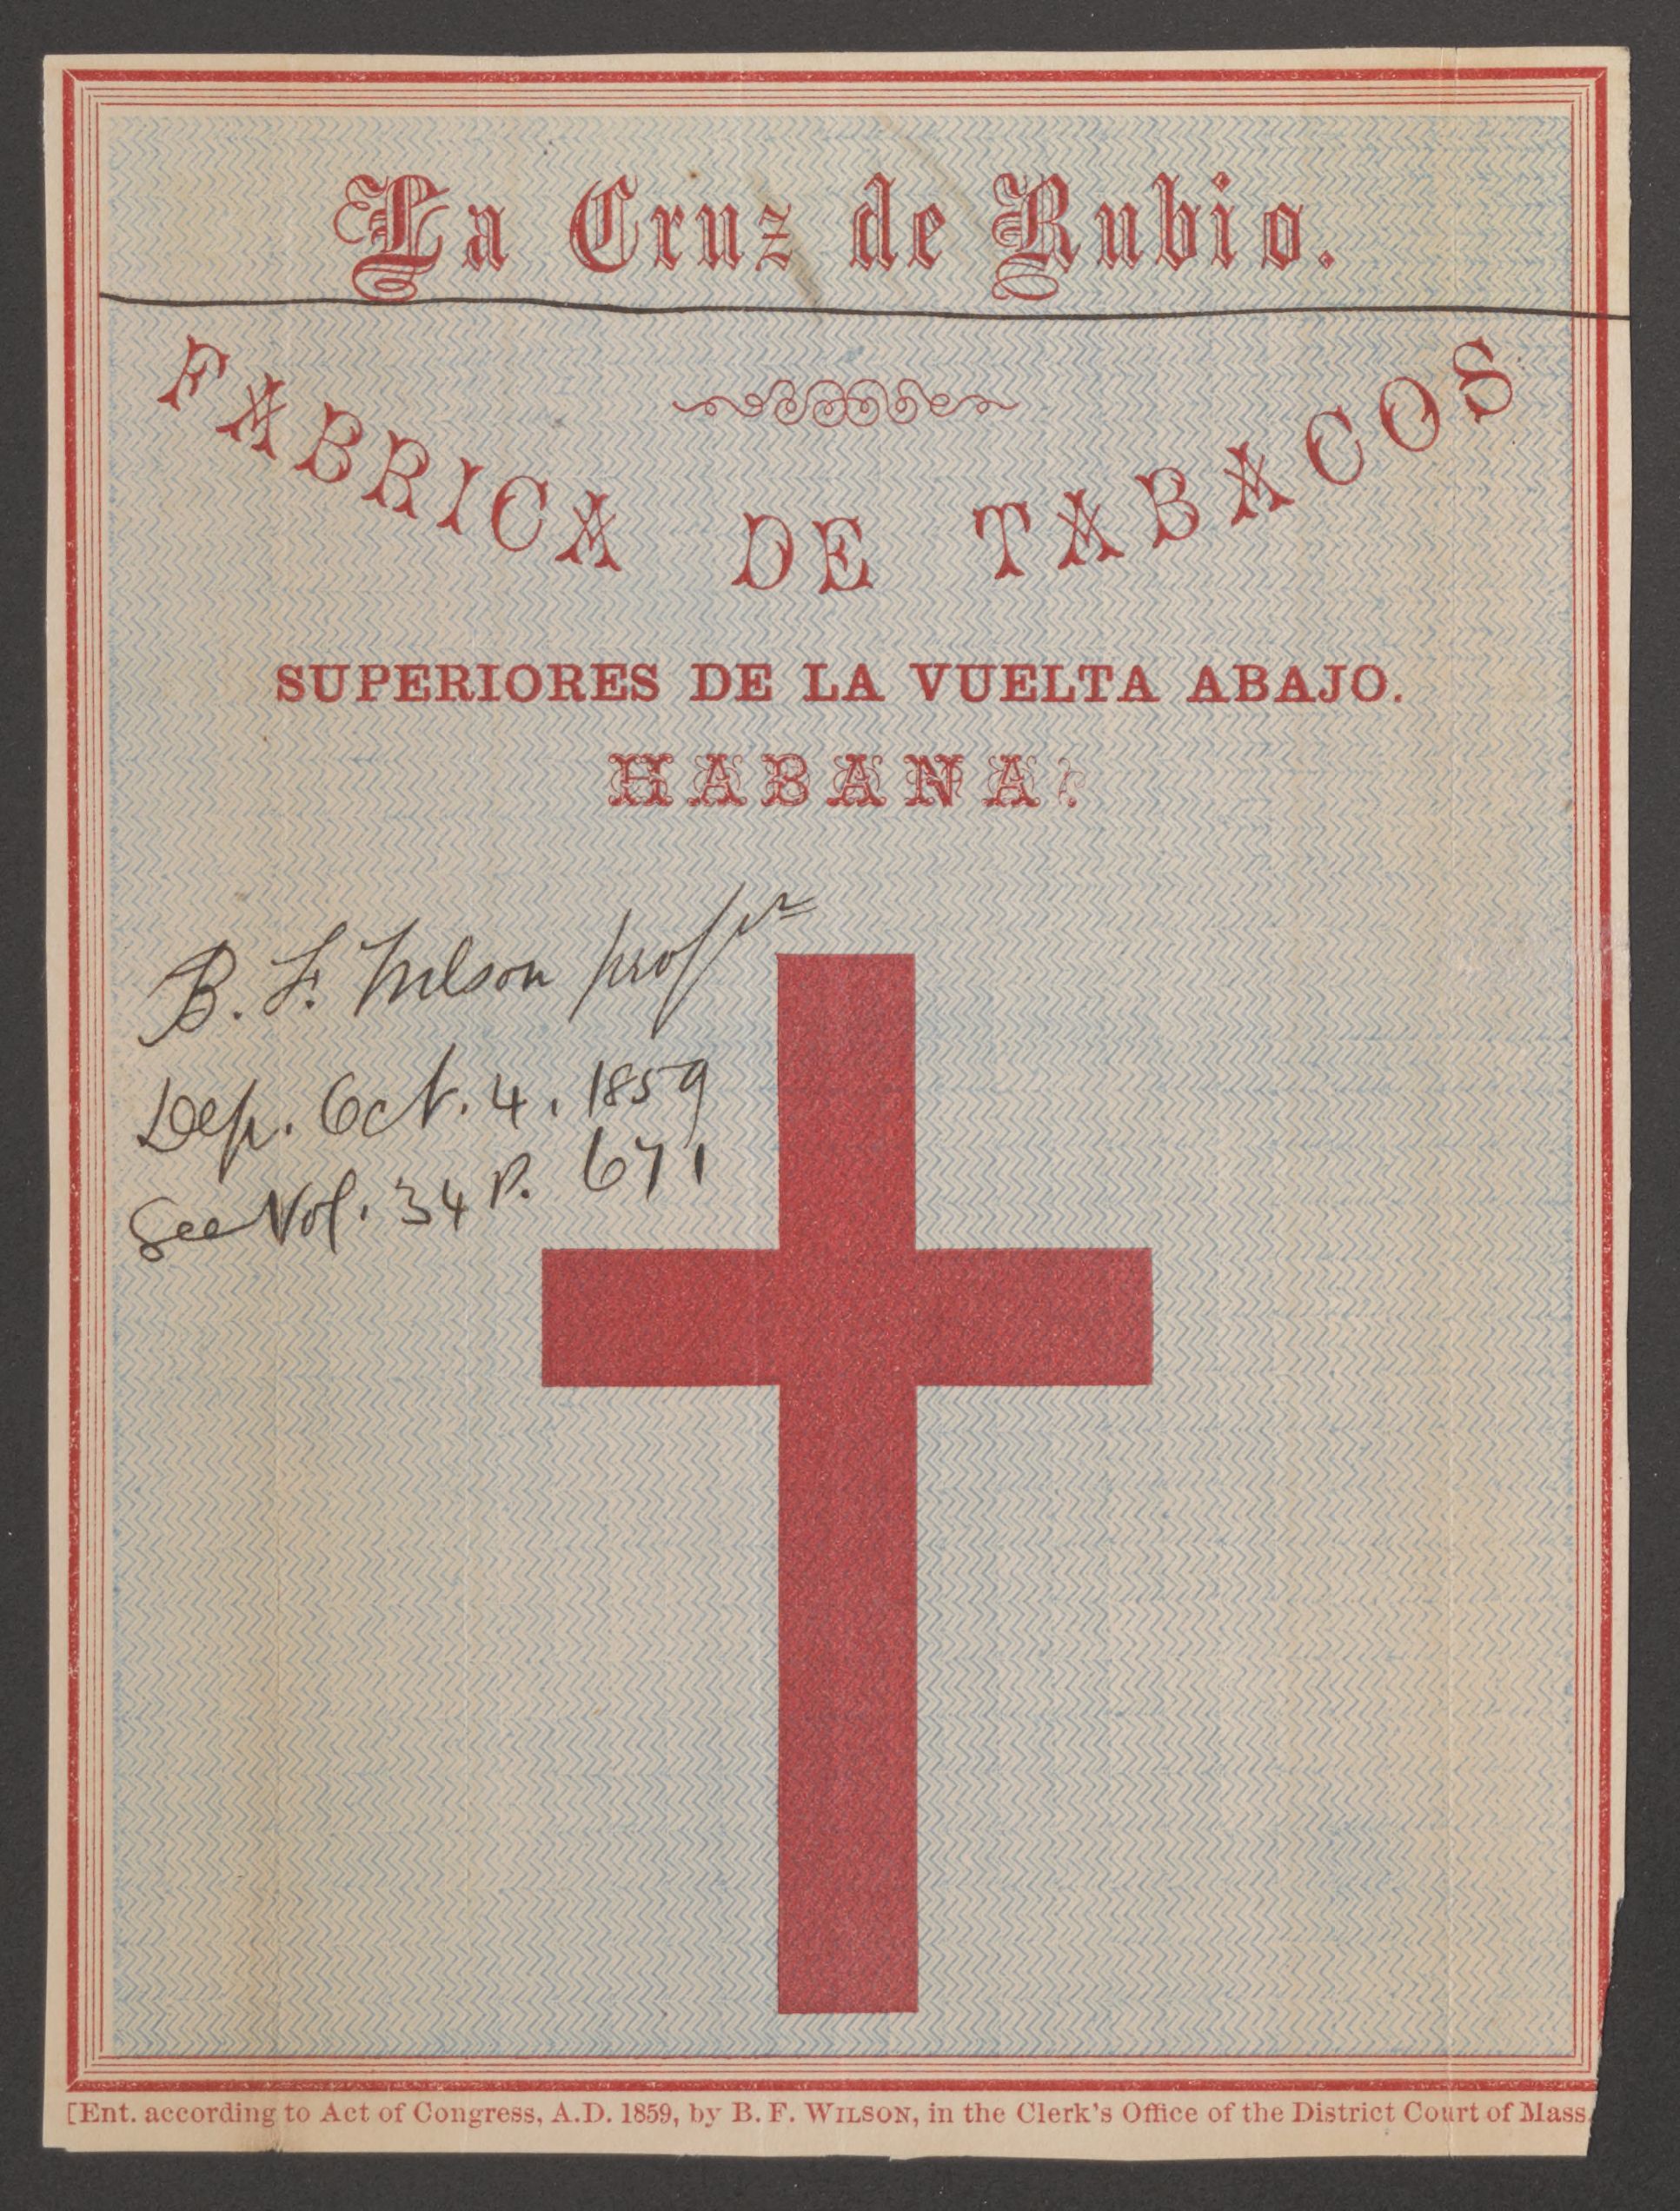 La Cruz de Rubio.
FABRICA DE TABACOS
SUPERIORES DE LA VUELTA ABAJO.
HABANA.
B. F. Wilson propr
Dep. Oct. 4, 1859
See Vol. 34 P. 671
[Ent. according to Act of Congress, A.D. 1859, by B. F. WILSON, in the Clerk's Office of the District Court of Mass.